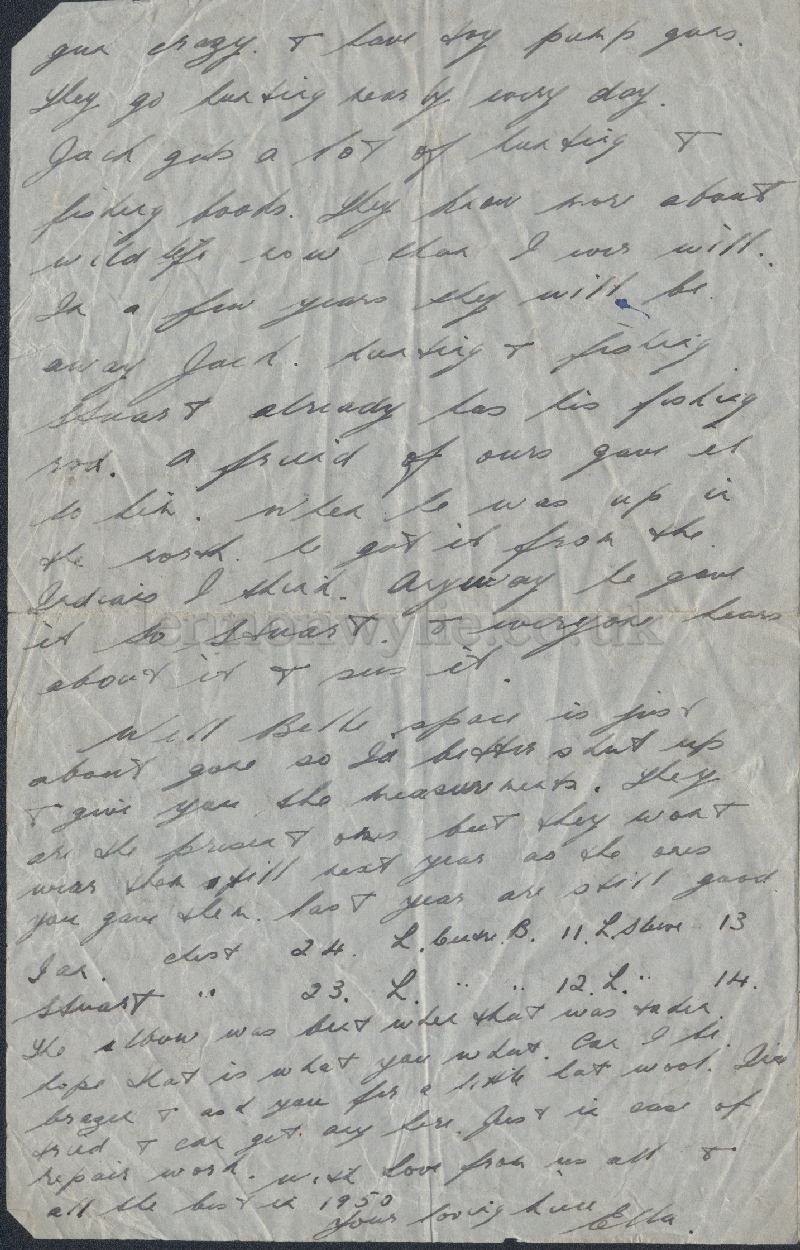 gun crazy. & have toy pump guns.
They go hunting nearly every day.
Jack gets a lot of hunting &
fishing books. They know more about
wild life now than I ever will.
In a few years they will be
away Jack. hunting & fishing
Stuart already has his fishing
rod. A friend of ours gave it
to him. When he was up in
the north he got it from the
Indians I think. Anyway he gave
it to Stuart. & everyone hears
about it & sees it.
Well Belle space is just
about gone so Id better shut up
& give you the measurements. They
are the present ones but they wont
wear them till next year as the ones
you gave them last year are still good
Ian. chest 24. L. centre B. 11. L. Sleeve 13
Stuart " 23. L. " " 12. L. " 14.
The elbow was bent when that was taken.
hope that is what you want. Can I be
& ask you for a little bat wool. Ive
tried & can get any here. Just in case of
repair work. with Love from us all &
all the best in 1950
Your loving niece
Ella.
lennonwylie.co.uk